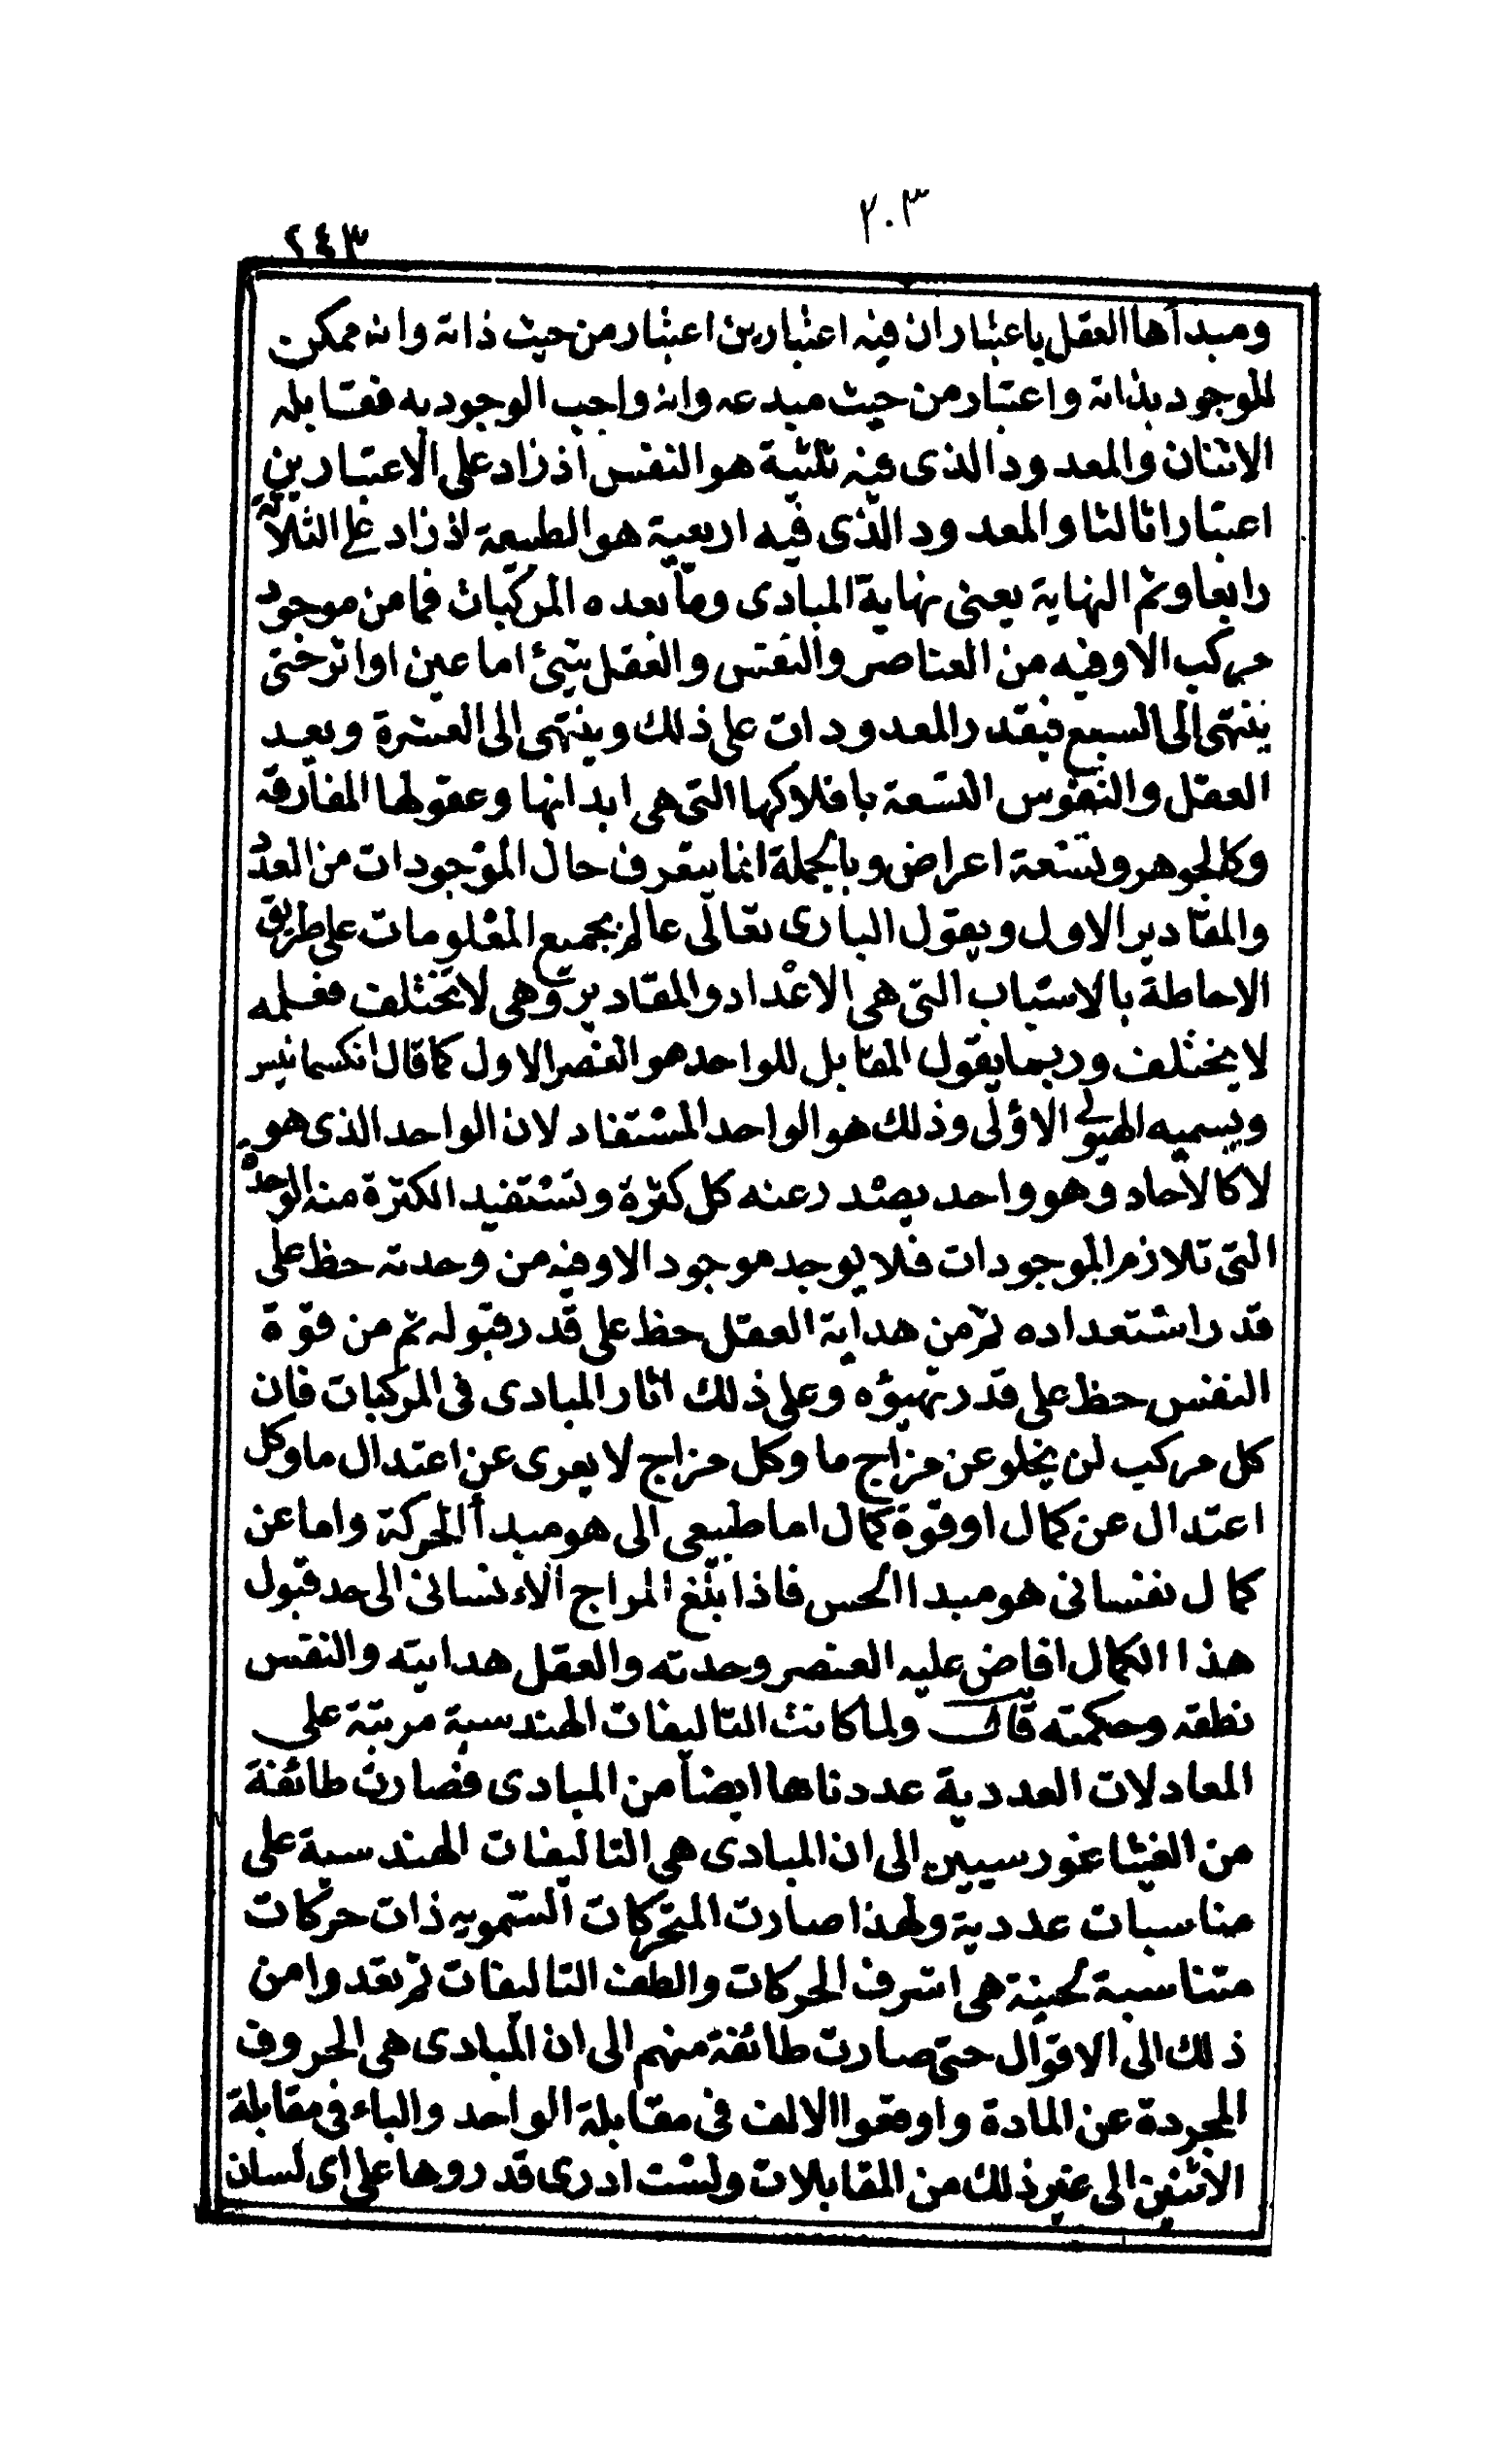 ٢٠٣
٢٤٣
ومبدأها العقل باعتبار ان فيه اعتبارين اعتبار من حيث ذاته وانه ممكن
للوجود بذاته واعتبار من حيث مبدعه وانه واجب الوجود به فقابله
الاثنان والمعدود الذى فيه ثلثية هو النفس اذ زاد على الاعتبارين
اعتبارا ثالثا والمعدود الذى فيه اربعية هو الطبيعة اذ زاد على الثلاثة
رابعا وثم النهاية يعنى نهاية المبادى وما بعده المركبات فما من موجود
مركب الا وفيه من العناصر والنفس والعقل شئ اما عين او اثر حتى
ينتهى الى السبع فيقدر المعدودات على ذلك وينتهى الى العشرة ويعد
العقل والنفوس التسعة بافلاكها التى هى ابدانها وعقولها المفارقة
وكالجوهر وتسعة اعراض وبالجملة انما يتعرف حال الموجودات من العدد
والمقادير الاول ويقول البارى تعالى عالم بجميع المعلومات على طريق
الاحاطة بالاسباب التى هى الاعداد والمقادير وهى لا تختلف فعلمه
لا يختلف وربما يقول المقابل للواحد هو العنصر الاول كما قال انكسمانيس
ويسميه الهيولى الاولى وذلك هو الواحد المستفاد لان الواحد الذى هو
لا كالاحاد وهو واحد يصدر عنه كل كثرة وتستفيد الكثرة منه الوحدة
التى تلازم الموجودات فلا يوجد موجود الا وفيه من وحدته حظ على
قدر استعداده ثم من هداية العقل حظ على قدر قبوله ثم من قوة
النفس حظ على قدر تهيؤه وعلى ذلك اثار المبادى فى المركبات فان
كل مركب لن يخلو عن مزاج ما وكل مزاج لا يعرى عن اعتدال ما وكل
اعتدال عن كمال او قوة كمال اما طبيعى الى هو مبدأ الحركة واما عن
كمال نفسانى هو مبدا الحس فاذا بلغ المزاج الانسانى الى حد قبول
هذا الكمال افاض عليه العنصر وحدته والعقل هدايته والنفس
نطقه وحكمته قال ولما كانت التاليفات الهندسية مرتبة على
المعادلات العددية عددناها ايضا من المبادى فصارت طائفة
من الفيثاغورسيين الى ان المبادى هى التاليفات الهندسية على
مناسبات عددية ولهذا صارت المتحركات السموية ذات حركات
متناسبة لحنية هى اشرف الحركات والطف التاليفات ثم تعدوا من
ذلك الى الاقوال حتى صارت طائفة منهم الى ان المبادى هى الحروف
المجردة عن المادة واوقعوا الالف فى مقابلة الواحد والباء فى مقابلة
الاثنين الى غير ذلك من المقابلات ولست ادرى قدروها على اى لسان